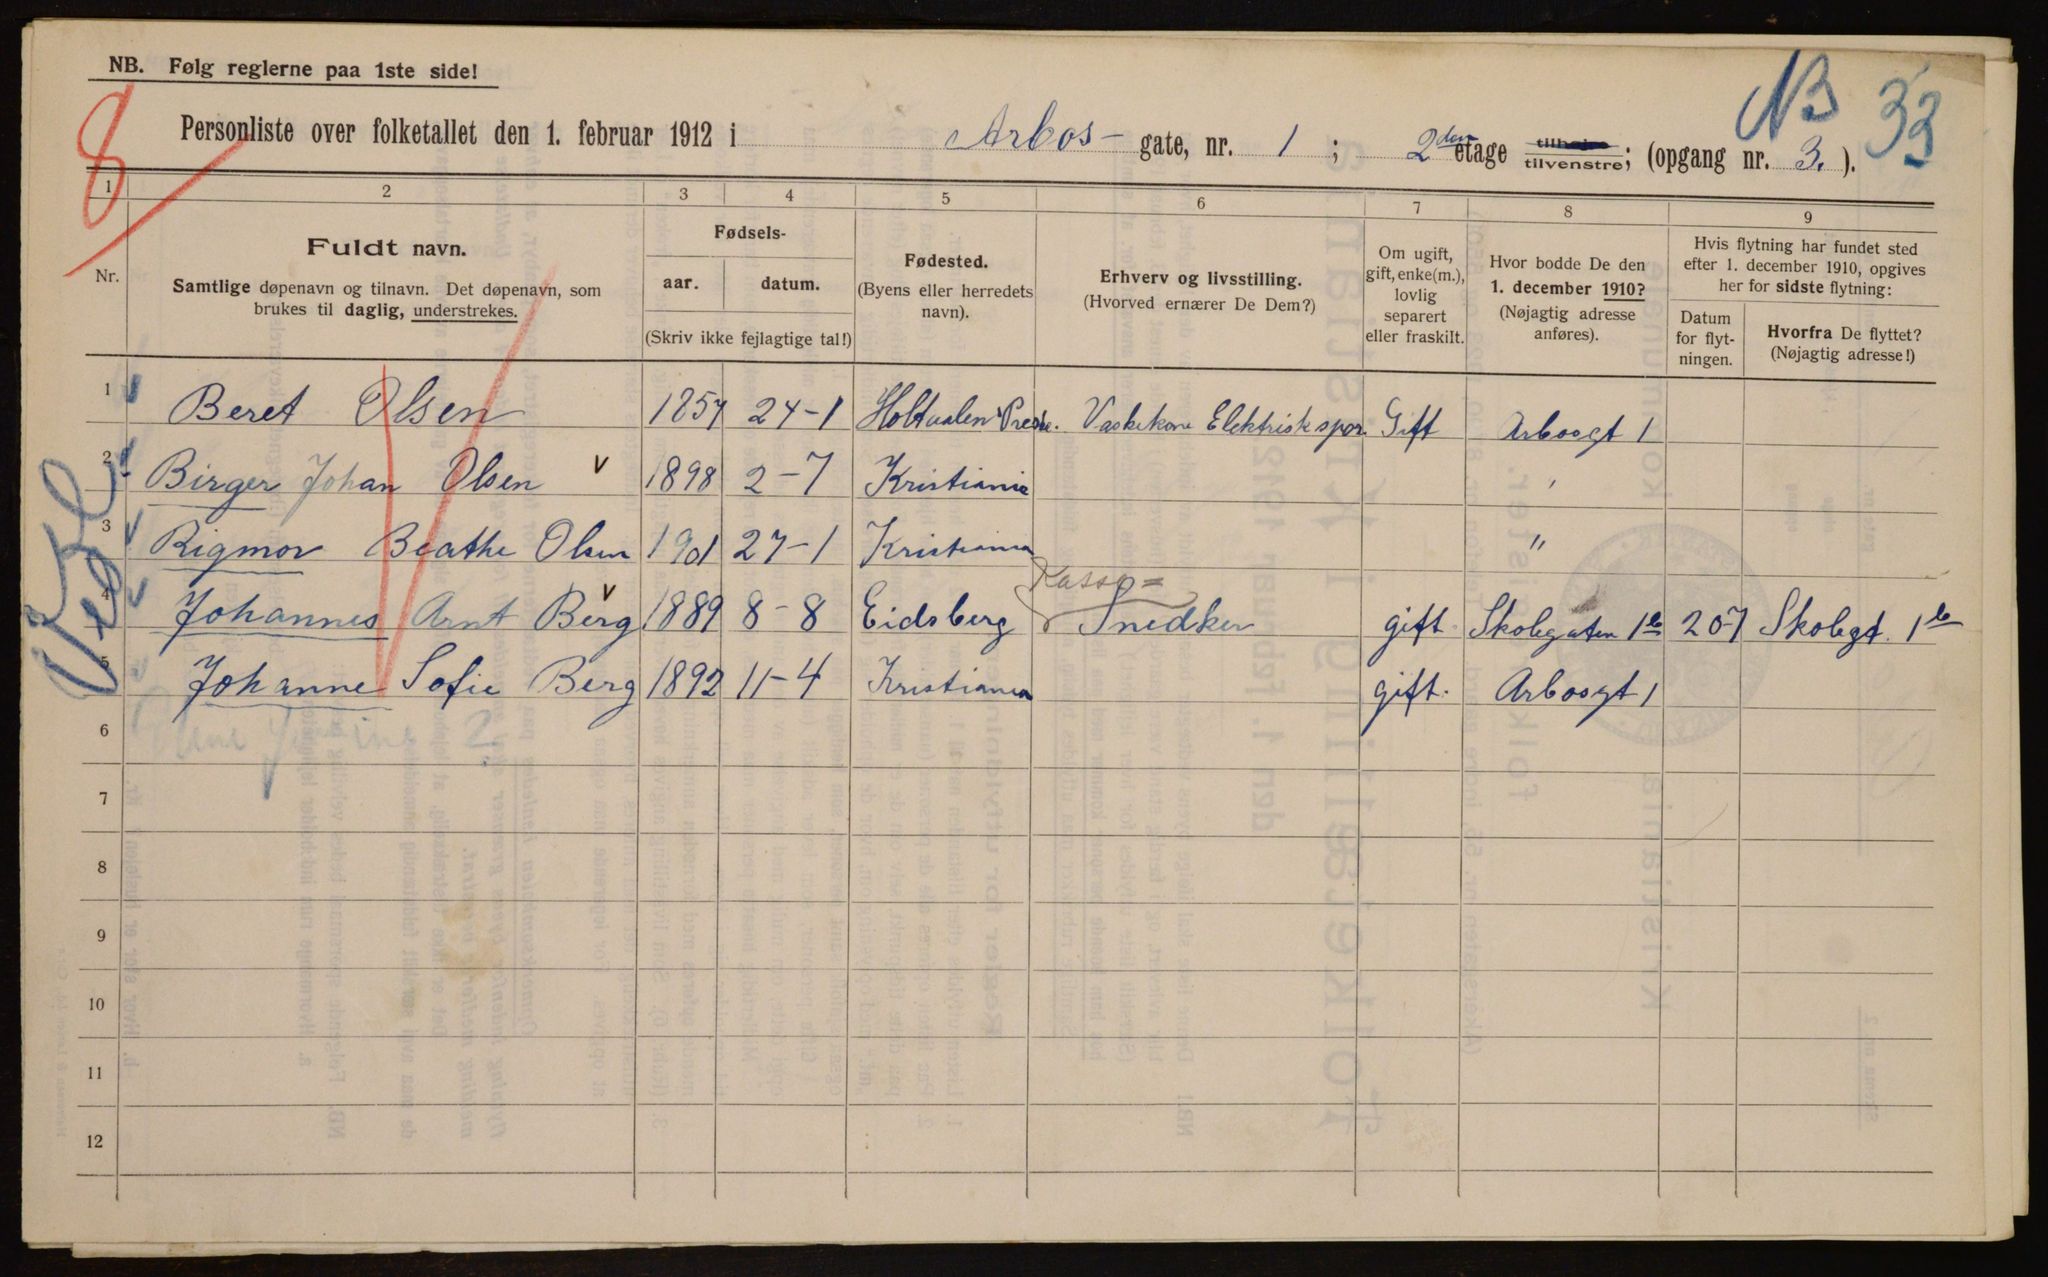 NB. Følg reglerne paa 1ste side!
8
NB 33
Personliste over folketallet den 1. februar 1912 i Arbos- gate, nr. 1; 2den etage tilhøjre tilvenstre; (opgang nr. 3.).
1 2 3 4 5 6 7 8 9
Nr.
Fuldt navn.
Samtlige døpenavn og tilnavn. Det døpenavn, som
brukes til daglig, understrekes.
Fødsels-
aar. datum.
(Skriv ikke fejlagtige tal!)
Fødested.
(Byens eller herredets
navn).
Erhverv og livsstilling.
(Hvorved ernærer De Dem?)
Om ugift,
gift, enke(m.),
lovlig
separert
eller fraskilt.
Hvor bodde De den
1. december 1910?
(Nøjagtig adresse
anføres).
Hvis flytning har fundet sted
efter 1. december 1910, opgives
her for sidste flytning:
Datum
for flyt-
ningen.
Hvorfra De flyttet?
(Nøjagtig adresse!)
1 Beret Olsen 1857 24-1 Holtaalen Vaskekone Elektrisk spor. Gift Arbosgt 1
2 Birger Johan Olsen v 1898 2-7 Kristiania "
3 Rigmor Beathe Olsen 1901 27-1 Kristiania "
Kasse=
4 Johannes Arnt Berg v 1889 8-8 Eidsberg Snedker gift Skolegaten 1b 20-7 Skolegt. 1b
5 Johanne Sofie Berg 1892 11-4 Kristiania gift. Arbosgt 1
6
7
8
9
10
11
12